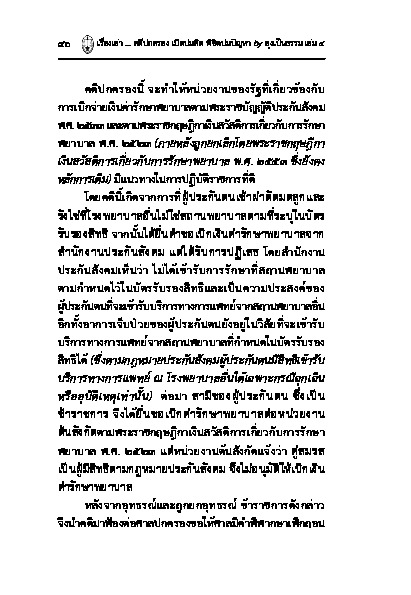 ๔๖ เรื่องเล่า ... คดีปกครอง เปิดปมคิด พิชิตปมปัญหา by ลุงเป็นธรรม เล่ม ๔
คดีปกครองนี้ จะทำให้หน่วยงานของรัฐที่เกี่ยวข้องกับ
การเบิกจ่ายเงินค่ารักษาพยาบาลตามพระราชบัญญัติประกันสังคม
พ.ศ. ๒๕๓๓ และตามพระราชกฤษฎีกาเงินสวัสดิการเกี่ยวกับการรักษา
พยาบาล พ.ศ. ๒๕๒๓ (ภายหลังถูกยกเลิกโดยพระราชกฤษฎีกา
เงินสวัสดิการเกี่ยวกับการรักษาพยาบาล พ.ศ. ๒๕๕๓ ซึ่งยังคง
หลักการเดิม) มีแนวทางในการปฏิบัติราชการที่ดี
โดยคดีนี้เกิดจากการที่ผู้ประกันตนเข้าผ่าตัดมดลูกและ
รังไข่ที่โรงพยาบาลอื่นไม่ใช่สถานพยาบาลตามที่ระบุในบัตร
รับรองสิทธิ จากนั้นได้ยื่นคำขอเบิกเงินค่ารักษาพยาบาลจาก
สำนักงานประกันสังคม แต่ได้รับการปฏิเสธ โดยสำนักงาน
ประกันสังคมเห็นว่า ไม่ได้เข้ารับการรักษาที่สถานพยาบาล
ตามกำหนดไว้ในบัตรรับรองสิทธิและเป็นความประสงค์ของ
ผู้ประกันตนที่จะเข้ารับบริการทางการแพทย์จากสถานพยาบาลอื่น
อีกทั้งอาการเจ็บป่วยของผู้ประกันตนยังอยู่ในวิสัยที่จะเข้ารับ
บริการทางการแพทย์จากสถานพยาบาลที่กำหนดในบัตรรับรอง
สิทธิได้ (ซึ่งตามกฎหมายประกันสังคมผู้ประกันตนมีสิทธิเข้ารับ
บริการทางการแพทย์ ณ โรงพยาบาลอื่นได้เฉพาะกรณีฉุกเฉิน
หรืออุบัติเหตุเท่านั้น) ต่อมา สามีของผู้ประกันตน ซึ่งเป็น
ข้าราชการ จึงได้ยื่นขอเบิกค่ารักษาพยาบาลต่อหน่วยงาน
ต้นสังกัดตามพระราชกฤษฎีกาเงินสวัสดิการเกี่ยวกับการรักษา
พยาบาล พ.ศ. ๒๕๒๓ แต่หน่วยงานต้นสังกัดแจ้งว่า คู่สมรส
เป็นผู้มีสิทธิตามกฎหมายประกันสังคม จึงไม่อนุมัติให้เบิกเงิน
ค่ารักษาพยาบาล
หลังจากอุทธรณ์และถูกยกอุทธรณ์ ข้าราชการดังกล่าว
จึงนำคดีมาฟ้องต่อศาลปกครองขอให้ศาลมีคำพิพากษาเพิกถอน